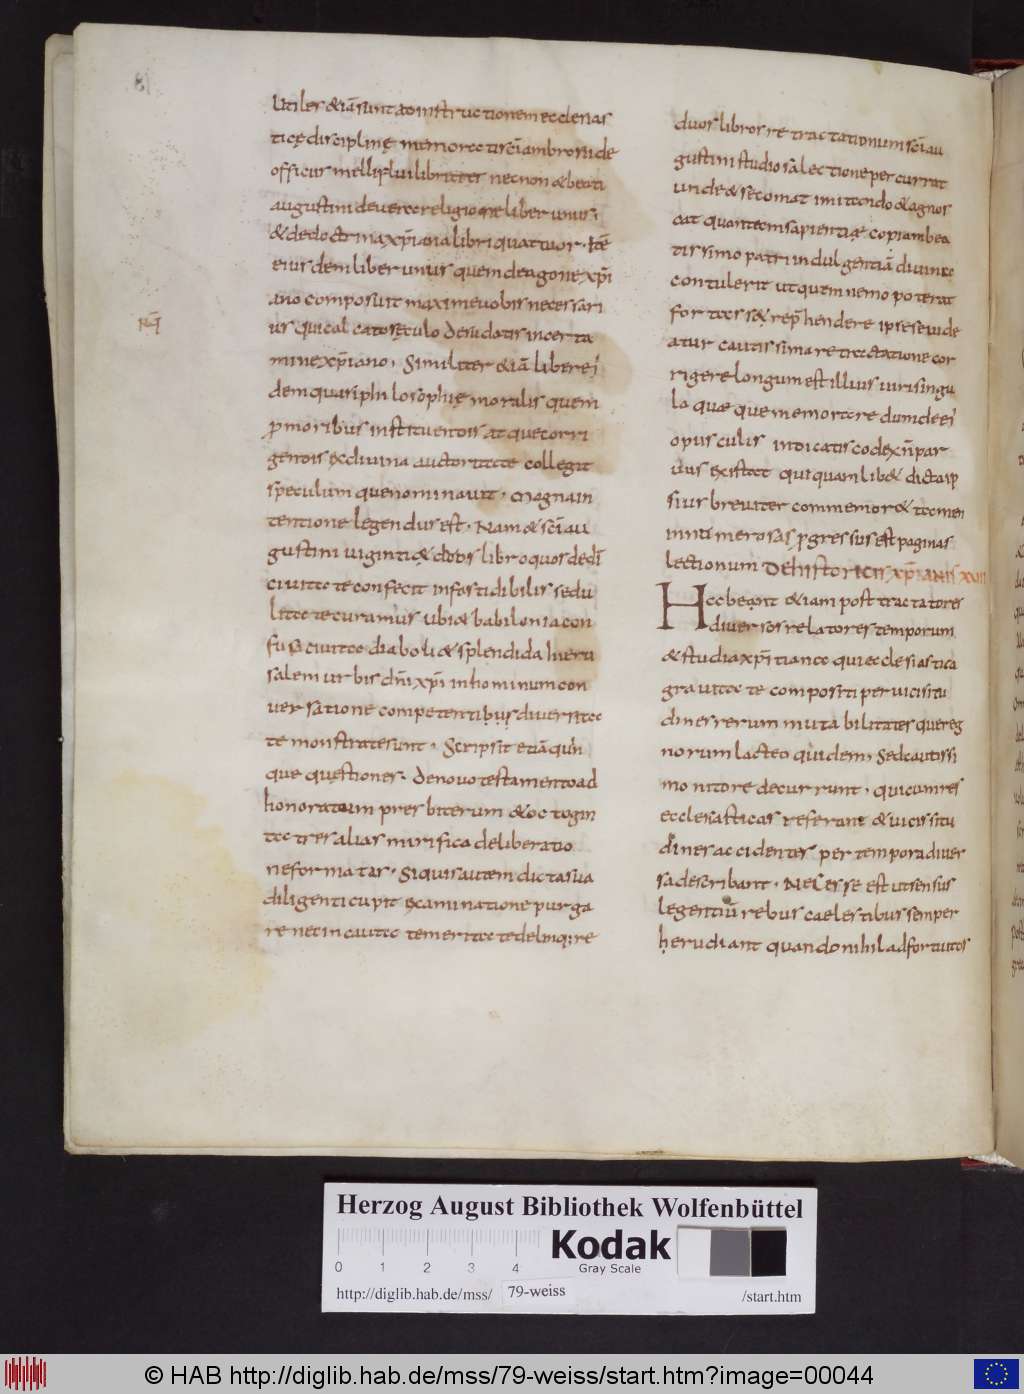 Utiles & iā sunt ad instructionem ecclesias
ticę disciplinę memorati sc̄i ambrosii de
officiis melliflui libri tres necnon & beati
augustini de uera religione liber unus;
& de doctrina xp̄iana libri quattuor. Itē
eiusdem liber unus quem de agone xp̄i
ano composuit maxime uobis necessari
us qui calcato sęculo desudatis in certa
mine xp̄iano. Similiter & iā liber ei
dem quasi philosophię moralis quem
pro moribus instituendis atque corri
gendis ex diuina auctoritate collegit
speculum que nominauit. Magna in
tentione legendus est. Nam & sc̄i au
gustini uiginti & duos libros quos de dī
ciuitate confecit infastidibili sedu
litate curamus ubi & babilonia con
fusa ciuitas diaboli & splendida hieru
salem urbis dn̄i xp̄i in hominum con
uersatione competenti diuersita
te monstrate sunt. Scripsit etiā quin
que questiones. De nouo testamento ad
honoratum presbiterum & octogin
ta tres alias mirifica deliberatio
ne formatas. Si quis autem dicta sua
diligenti cupit examinatione purga
re nec incauta temeritate delinquere
duos libros retractationum sc̄i au
gustini studiosa lectione percurrat
unde & se comat imitando & agnos
cat quantam sapientiæ copiam bea
tissimo patri indulgentiā diuina
contulerit ut quem nemo poterat
fortasse reprehendere ipse se uide
atur cautissima retractatione cor
rigere longum est illius uiri singu
la quæque memorare dum de ei
opusculis indicatis codex nō par
uus existat qui quamlib& dicta ip
sius breuiter commemor& tamen
in numerosas progressus est paginas
lectionum De historicis xp̄ianis XVII
Habeant & iam post tractatores
diuersos relatores temporum
& studia xp̄itiana qui ecclesiastica
grauitate compositi per uicissitu
dines rerum mutabilitates que reg
norum lacteo quidem, Sed cautissi
mo nitore decurrunt. qui cum res
ecclesiasticas referant & uicissitu
dines accidentes per tempora diuer
sa describant. Necesse est ut sensus
legentiū rebus caelestibus semper
erudiant quando nihil ad fortuitos
Herzog August Bibliothek Wolfenbüttel
0 1 2 3 4
Kodak
Gray Scale
http://diglib.hab.de/mss/ 79-weiss /start.htm
© HAB http://diglib.hab.de/mss/79-weiss/start.htm?image=00044